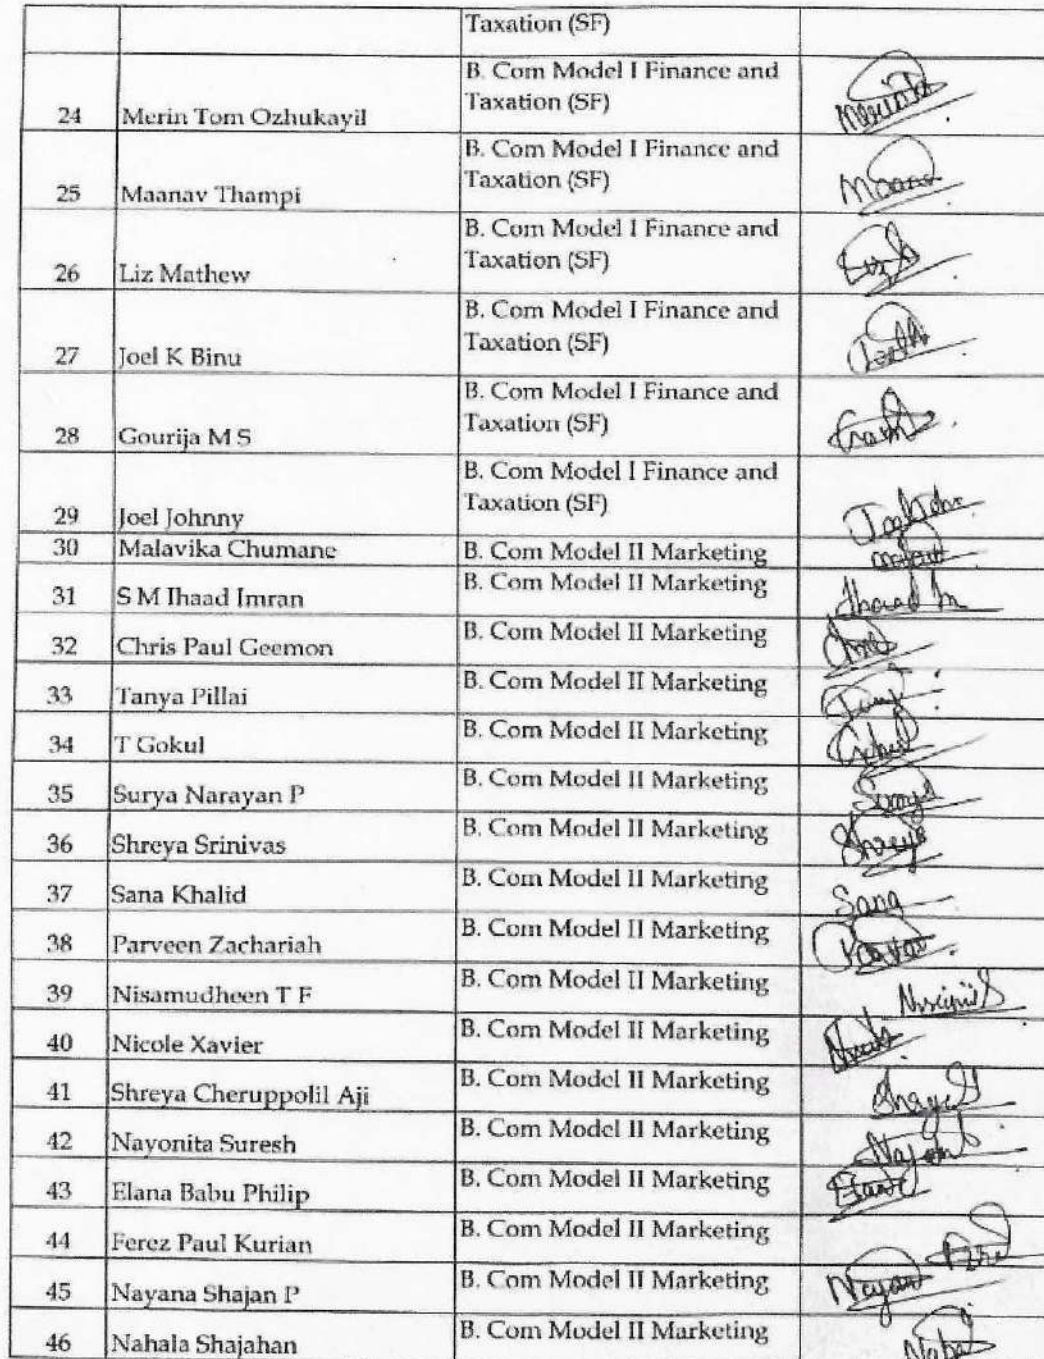 Taxation (SF)
B. Com Model I Finance and
Taxation (SF)
24 Merin Tom Ozhukayil
B. Com Model I Finance and
Taxation (SF)
25 Maanav Thampi
B. Com Model I Finance and
Taxation (SF)
26 Liz Mathew
B. Com Model I Finance and
Taxation (SF)
27 Joel K Binu
B. Com Model I Finance and
Taxation (SF)
28 Gourija M S
B. Com Model I Finance and
Taxation (SF)
29 Joel Johnny
30 Malavika Chumane B. Com Model II Marketing
31 S M Ihaad Imran B. Com Model II Marketing
32 Chris Paul Geemon B. Com Model II Marketing
33 Tanya Pillai B. Com Model II Marketing
34 T Gokul B. Com Model II Marketing
35 Surya Narayan P B. Com Model II Marketing
36 Shreya Srinivas B. Com Model II Marketing Shreya
37 Sana Khalid B. Com Model II Marketing Sana
38 Parveen Zachariah B. Com Model II Marketing
39 Nisamudheen T F B. Com Model II Marketing
40 Nicole Xavier B. Com Model II Marketing
41 Shreya Cheruppolil Aji B. Com Model II Marketing
42 Nayonita Suresh B. Com Model II Marketing
43 Elana Babu Philip B. Com Model II Marketing
44 Ferez Paul Kurian B. Com Model II Marketing
45 Nayana Shajan P B. Com Model II Marketing
46 Nahala Shajahan B. Com Model II Marketing